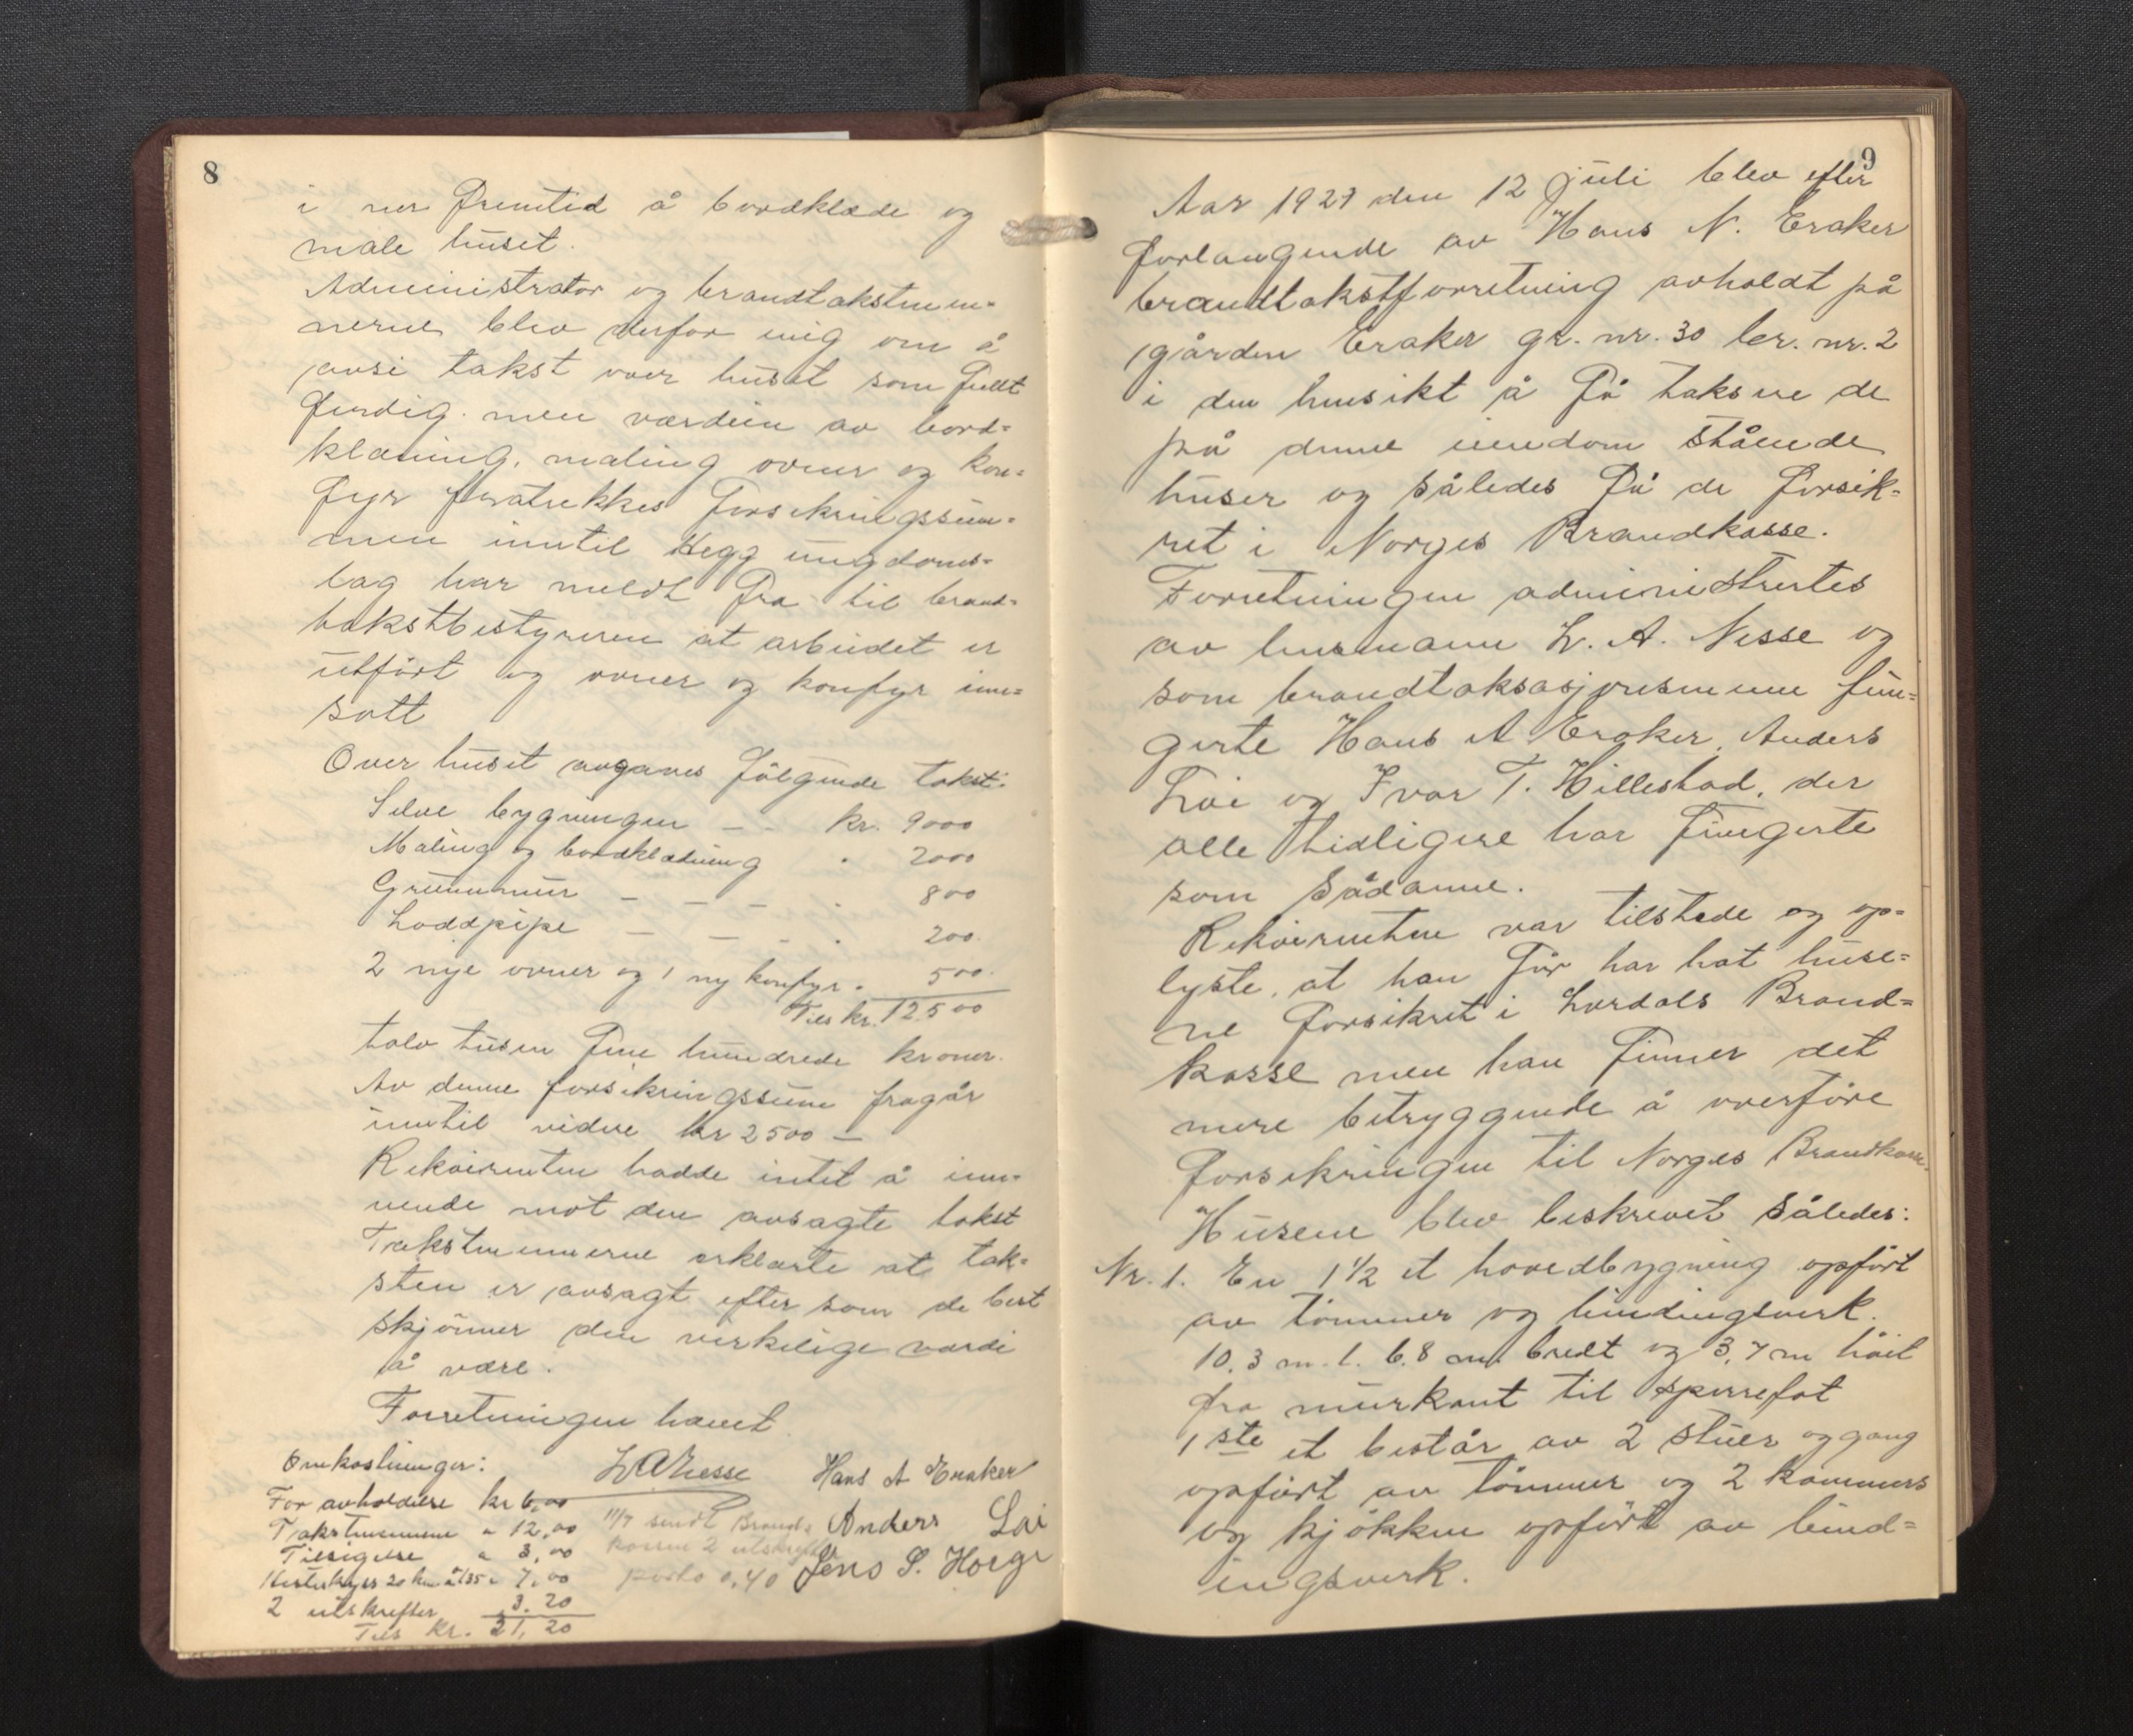 8
i nær fremtid å bordklæde og
male huset.
Administrator og brandtakstmen-
nerne blev derfor enig om å
avsi takst over huset som fullt
ferdig. men værdien av bord-
klæning, maling ovner og kom-
fyr fratrekkes forsikringssum-
men inntil Hegg ungdoms-
lag har meldt fra til brand-
takstbestyreren at arbeidet er
utført og ovner og komfyr inn-
satt
Over huset avgaves følgende takst:
Selve bygningen — - kr. 9000
Maling og bordklædning " 2000
Grunnmur — — — . 800
Loddpipe — — — . 200.
2 nye ovner og 1 ny komfyr. 500.
Tils kr. 12500
tolv tusen fem hundrede kroner.
Av denne forsikringssum fragår
inntil videre kr 2500 —
Rekvirenten hadde intet å inn-
vende mot den avsagte takst
Takstmennerne erklærte at tak-
sten er avsagt efter som de best
skjønner den virkelige værdi
å være.
Forretningen hævet
Omkostninger:
For avholdelse kr 6,00
Takstmennene " 12,00
Tilsigelse " 3,00
Hesteskyss 20 km à 35 " 7,00
2 utskrifter 3.20
Tils kr. 31,20
L A Nesse
11/7 sendt Brand-
kassen 2 utskrifter
porto 0,40
Hans A Eraker
Anders Loi
Jens S. Horge
9
Aar 1927 den 12 juli blev efter
forlangende av Hans N. Eraker
brandtakstforretning avholdt på
gården Eraker gr. nr. 30 br. nr. 2
i den hensikt å få taksere de
på denne eiendom stående
huser og således få de forsik-
ret i Norges Brandkasse.
Forretningen administrertes
av lensmann L. A. Nesse og
som brandtaksasjonsmenn fun-
gerte Hans A Eraker, Anders
Loi og Ivar T. Hillestad, der
alle tidligere har fungerte
som sådanne.
Rekvirenten var tilstede og op-
lyste, at han før har hat huse-
ne forsikret i Lærdals Brand-
kasse men han finner det
mere betryggende å overføre
forsikringen til Norges Brandkasse.
Husene blev beskrevet således:
Nr. 1. En 1 1/2 et hovedbygning opført
av tømmer og bindingsverk.
10.3 m. l. 6.8 m. bredt og 3,7 m høit
fra murkant til sperrefot
1ste et består av 2 stuer og gang
opført av tømmer og 2 kammers
og kjøkken opført av bind-
ingsverk.